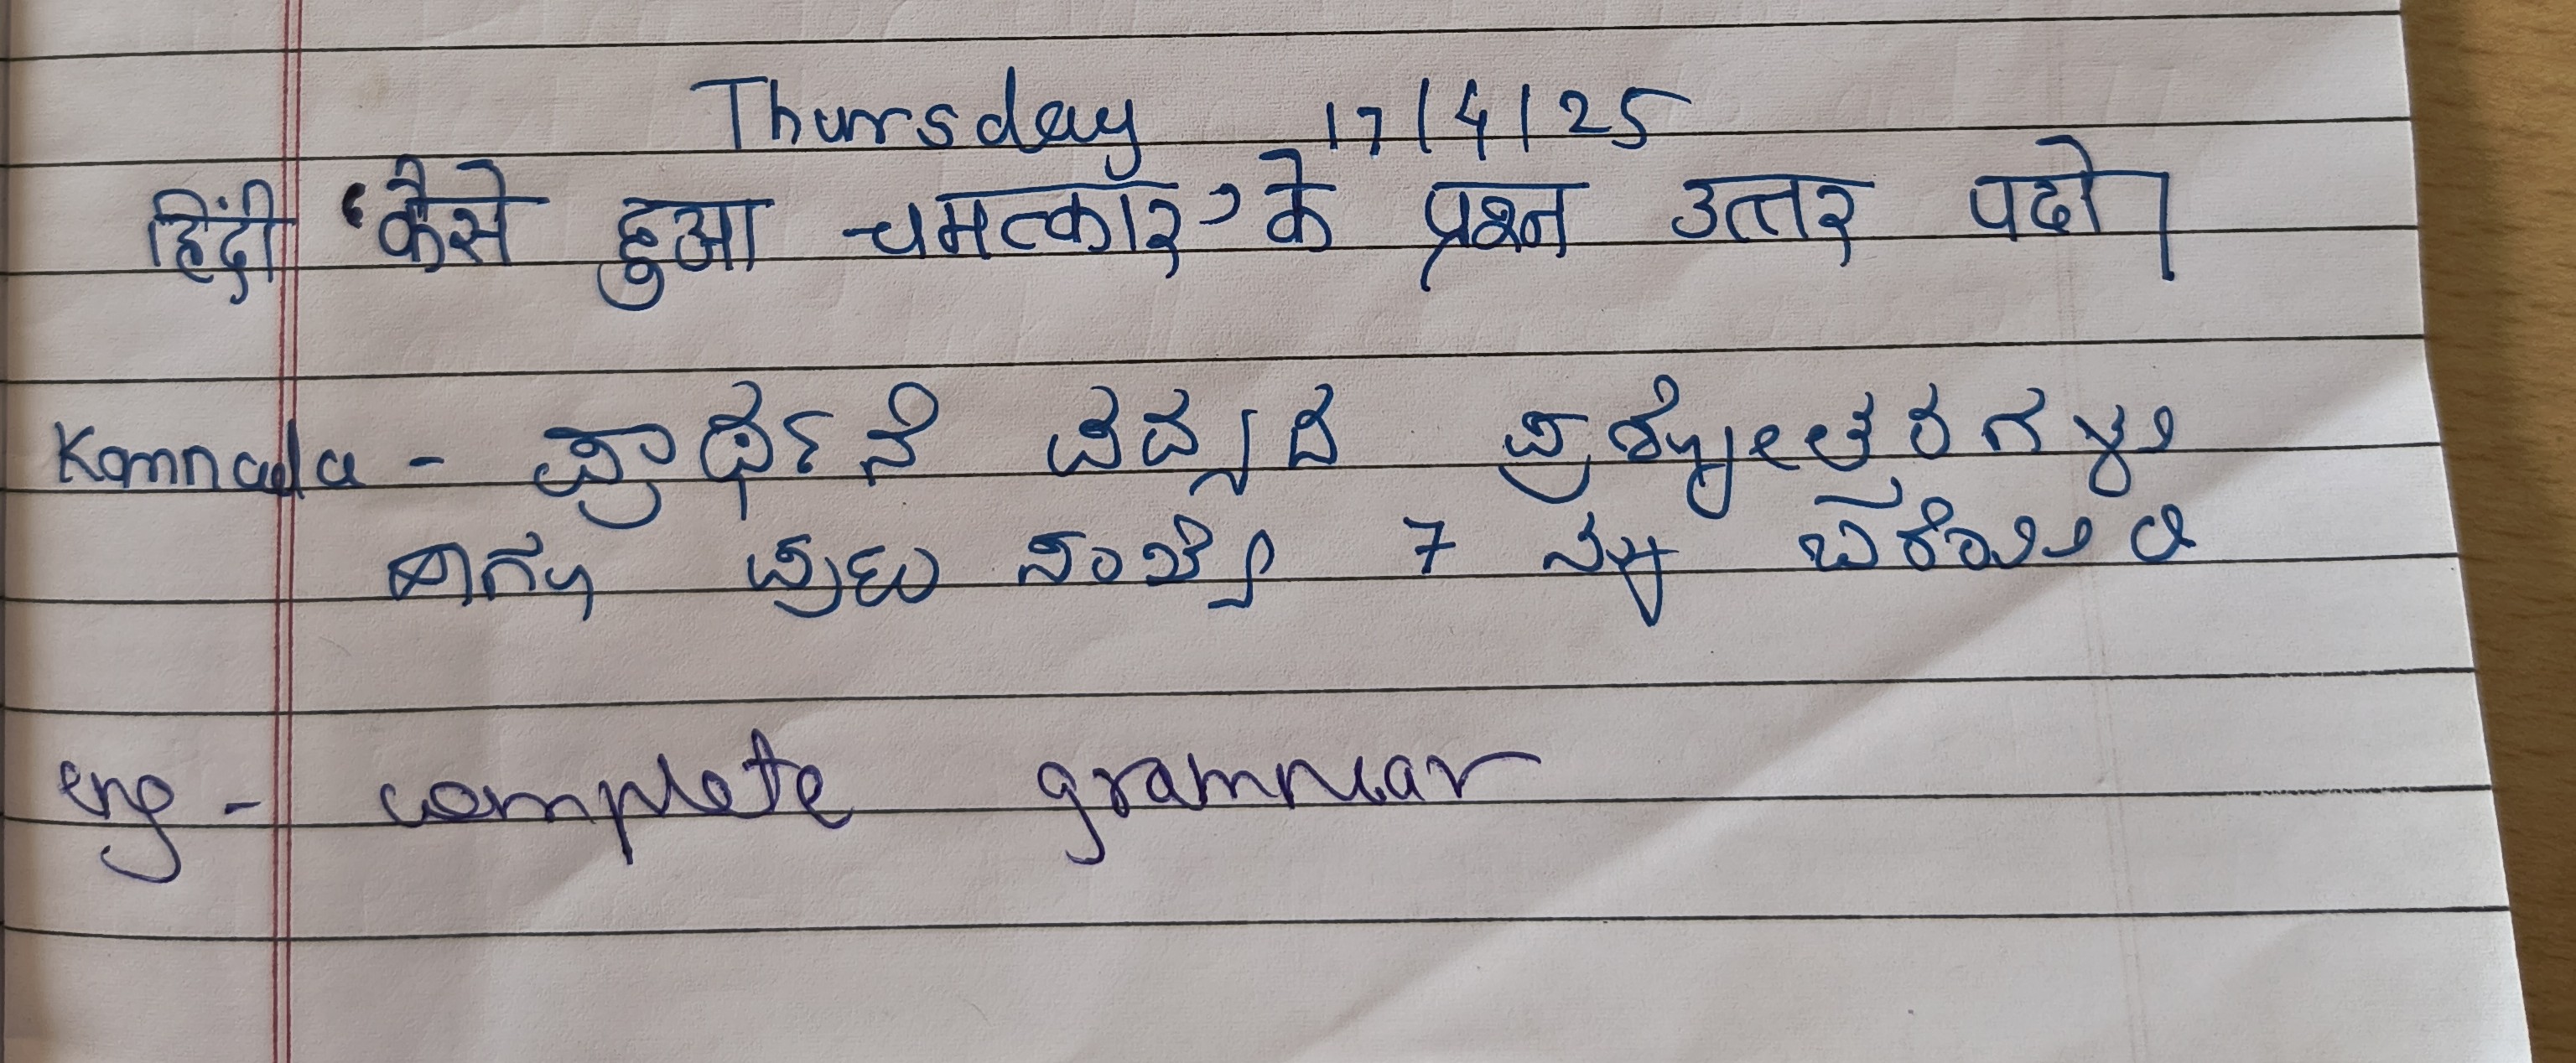 Thursday 17/4/25
हिंदी 'कैसे हुआ चमत्कार' के प्रश्न उत्तर पढो।
Kannada - ಪ್ರಾರ್ಥನೆ ಪದ್ಯದ ಪ್ರಶ್ನೋತ್ತರಗಳು
ಹಾಗೂ ಪುಟ ಸಂಖ್ಯೆ 7 ನ್ನು ಬರೆಯಿರಿ
eng - complete grammar